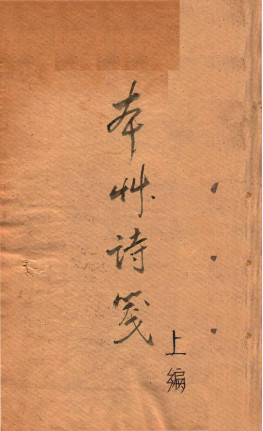 本艸诗笺
上编